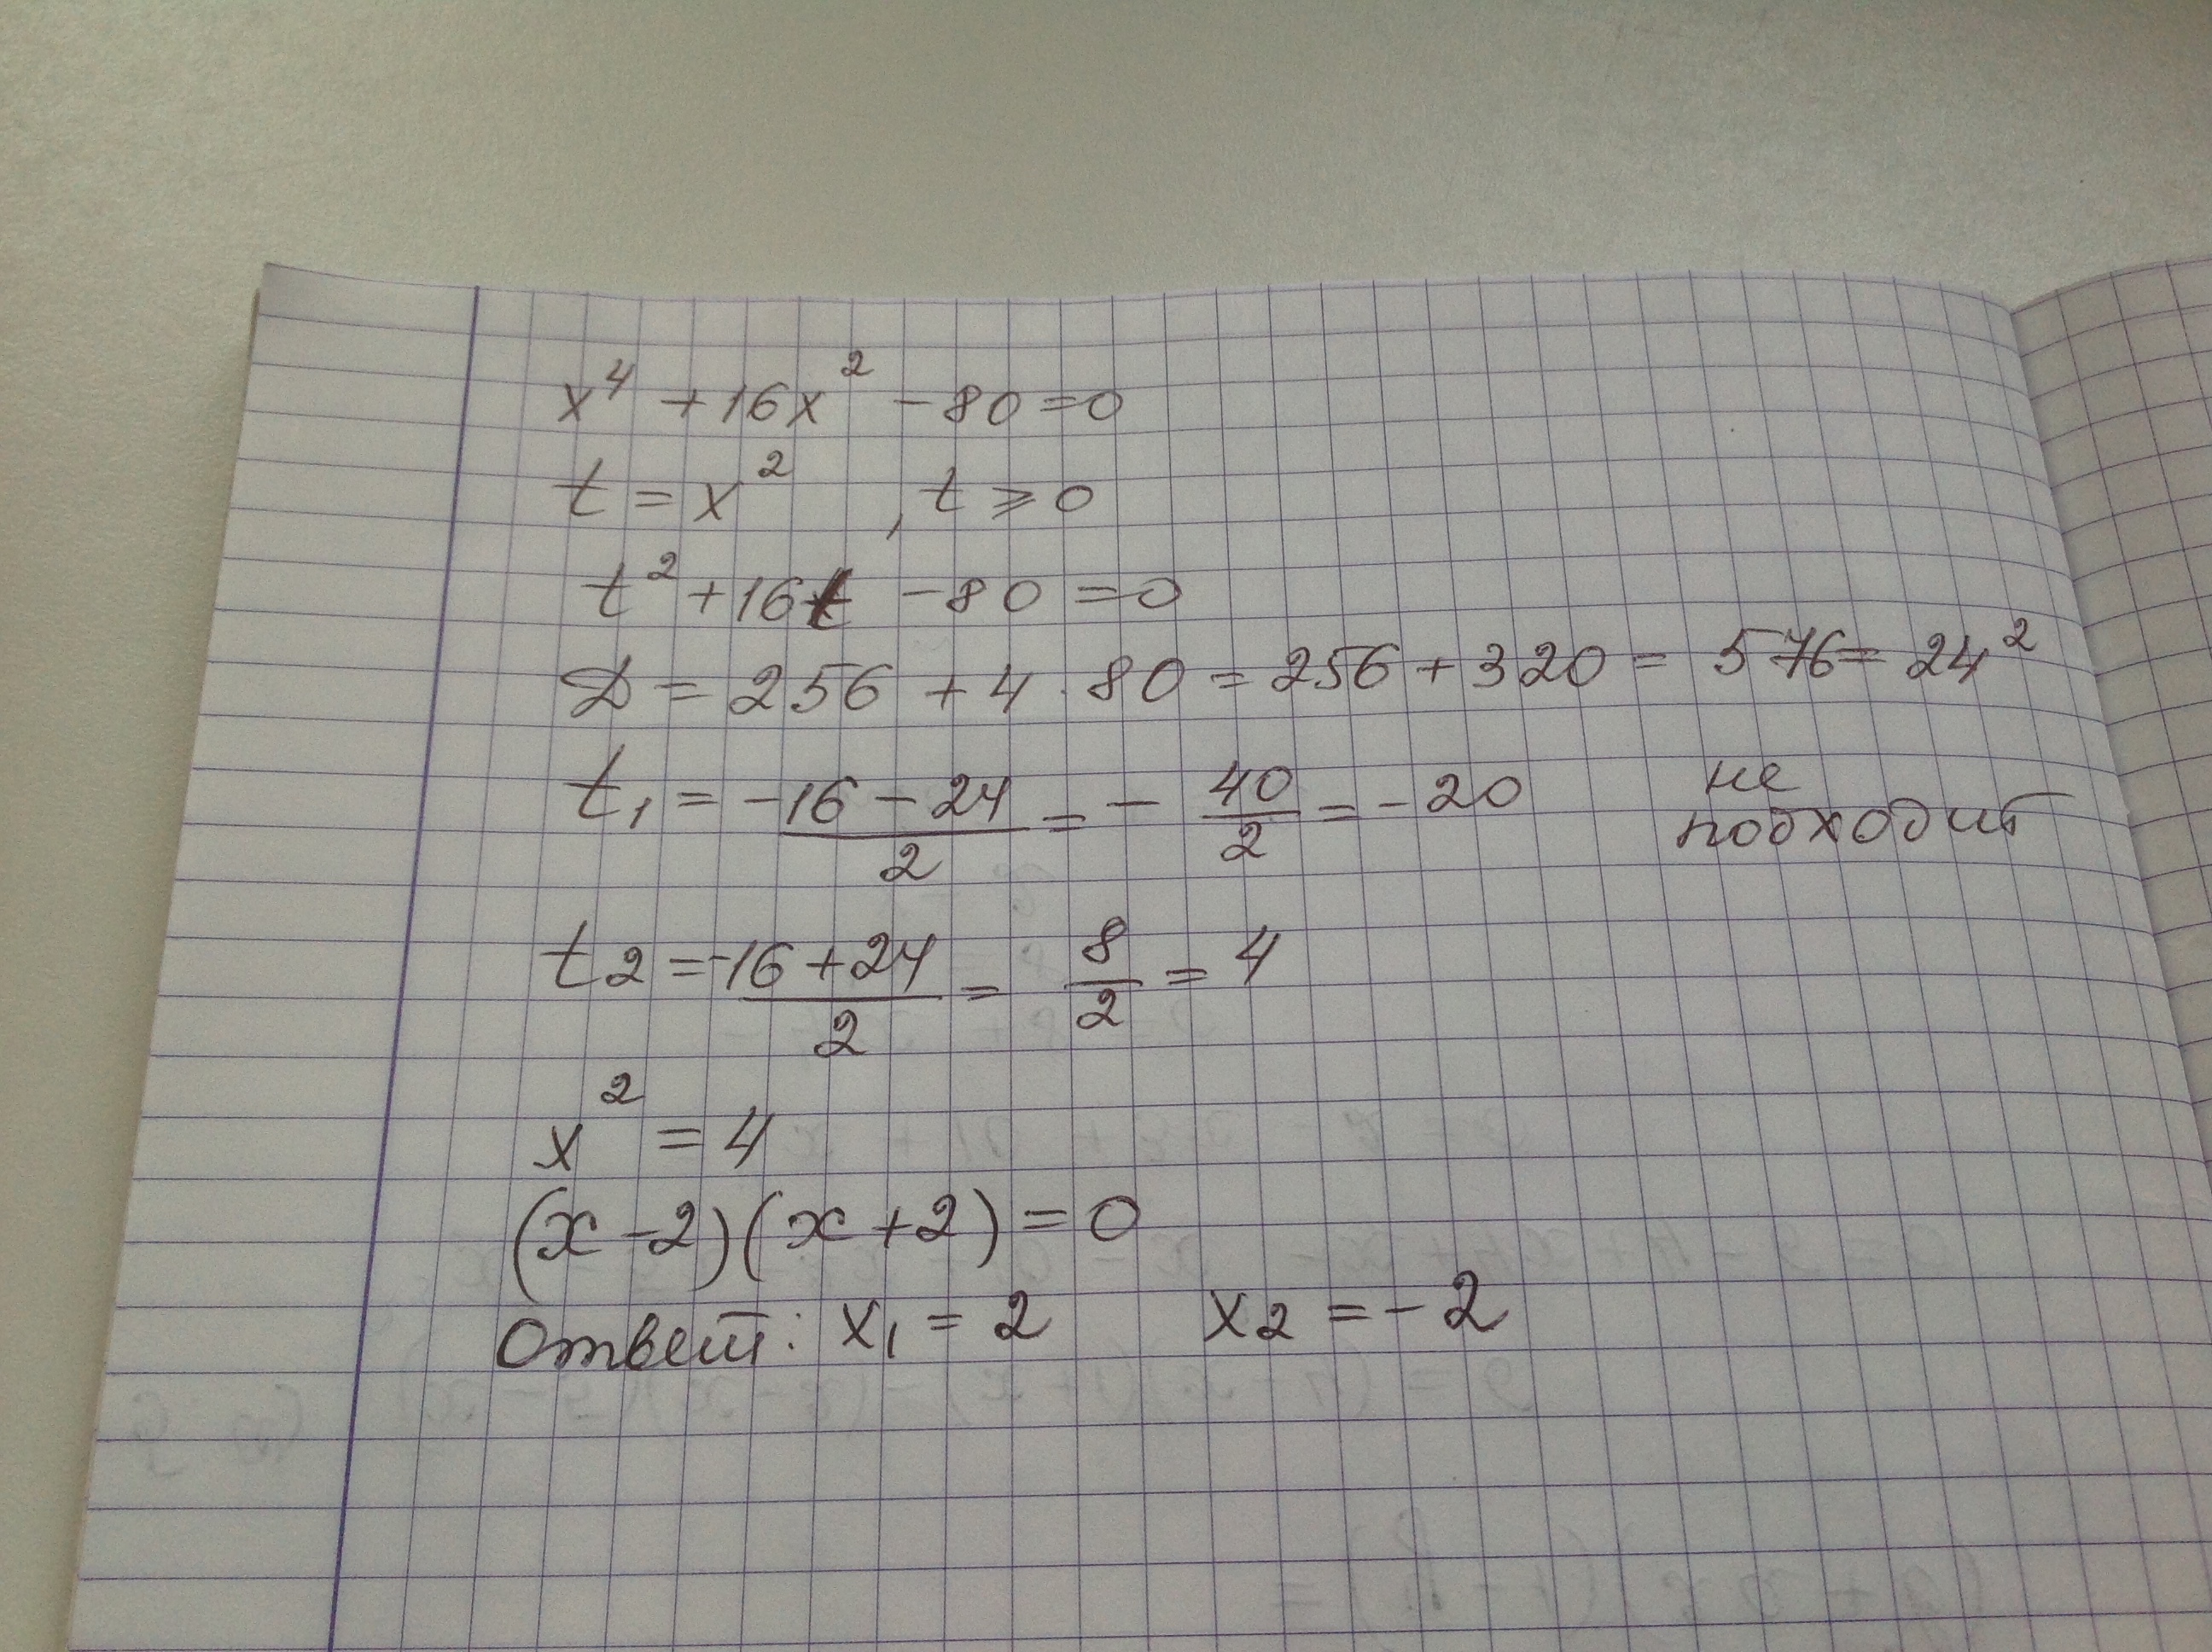 x⁴ + 16x² - 80 = 0
t = x² , t ⩾ 0
t² + 16t - 80 = 0
D = 256 + 4 · 80 = 256 + 320 = 576 = 24²
t₁ = (-16 - 24)/2 = - 40/2 = -20 не подходит
t₂ = (-16 + 24)/2 = 8/2 = 4
x² = 4
(x - 2)(x + 2) = 0
Ответ: x₁ = 2 x₂ = -2